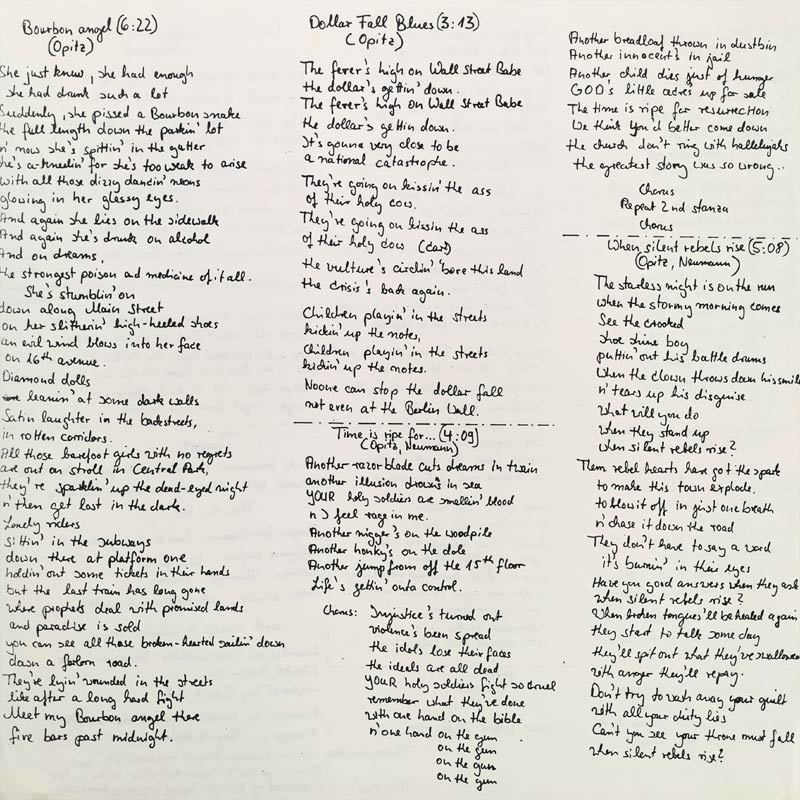 Bourbon angel (6:22)
(Opitz)
She just knew, she had enough
she had drunk such a lot
Suddenly, she pissed a Bourbon snake
the full length down the parkin' lot
n' now she's spittin' in the gutter
She's a-kneelin' for she's too weak to arise
With all those dizzy dancin' neons
glowing in her glassy eyes.
And again she lies on the sidewalk
And again she's drunk on alcohol
And on dreams,
the strongest poison and medicine of it all.
She's stumblin' on
down along Main Street
on her slitherin' high-heeled shoes
an evil wind blows into her face
on 16th avenue.
Diamond dolls
leanin' at some dark walls
Satin laughter in the backstreets,
in rotten corridors.
All those barefoot girls with no regrets
are out on stroll in Central Park,
they're sparklin' up the dead-eyed night
n' then get lost in the dark.
Lonely riders
sittin' in the subways
down there at platform one
holdin' out some tickets in their hands
but the last train has long gone
where prophets deal with promised lands
and paradise is sold
you can see all those broken-hearted sailin' down
down a forlorn road.
They're lyin' wounded in the streets
like after a long hard fight
Meet my Bourbon angel there
five bars past midnight.
Dollar Fall Blues (3:13)
(Opitz)
The fever's high on Wall Street Babe
the dollar's gettin' down.
The fever's high on Wall Street Babe
the dollar's gettin down.
It's gonna very close to be
a national catastrophe.
They're going on kissin' the ass
of their holy cow.
They're going on kissin the ass
of their holy cow (dard)
the vulture's circlin' 'bove this land
the crisis's back again.
Children playin' in the streets
kickin' up the notes,
Children playin' in the streets
kickin' up the notes.
Noone can stop the dollar fall
not even at the Berlin Wall.
Time is ripe for... (4:09)
(Opitz, Neumann)
Another razorblade cuts dreams in train
another illusion drowns in sea
YOUR holy soldiers are smellin' blood
n I feel rage in me.
Another nigger's on the woodpile
Another honky's on the dole
Another jump from off the 15th floor
Life's gettin' outa control.
Chorus: Injustice's turned out
violence's been spread
the idols lose their faces
the ideals are all dead
YOUR holy soldiers fight so cruel
remember what they've done
with one hand on the bible
n' one hand on the gun
on the gun
on the gun
on the gun
Another breadloaf thrown in dustbin
Another innocent's in jail
Another child dies just of hunger
GOD's little acres up for sale
The time is ripe for resurrection
We think you'd better come down
the church don't ring with hallelujahs
the greatest story was so wrong..
Chorus
Repeat 2nd stanza
Chorus
When silent rebels rise (5:08)
(Opitz, Neumann)
The starless night is on the run
when the stormy morning comes
See the crooked
shoe shine boy
puttin' out his battle drums
When the clown throws down his smile
n' tears up his disguise
What will you do
When they stand up
when silent rebels rise?
Them rebel hearts have got the spark
to make this town explode,
to blow it off in just one breath
n' chase it down the road
They don't have to say a word
it's burnin' in their eyes
Have you good answers when they ask
when silent rebels rise?
When broken tongues'll be healed again
they start to talk some day
they'll spit out what they've swallowed
with anger they'll repay.
Don't try to wash away your guilt
with all your dirty lies
Can't you see your throne must fall
when silent rebels rise?